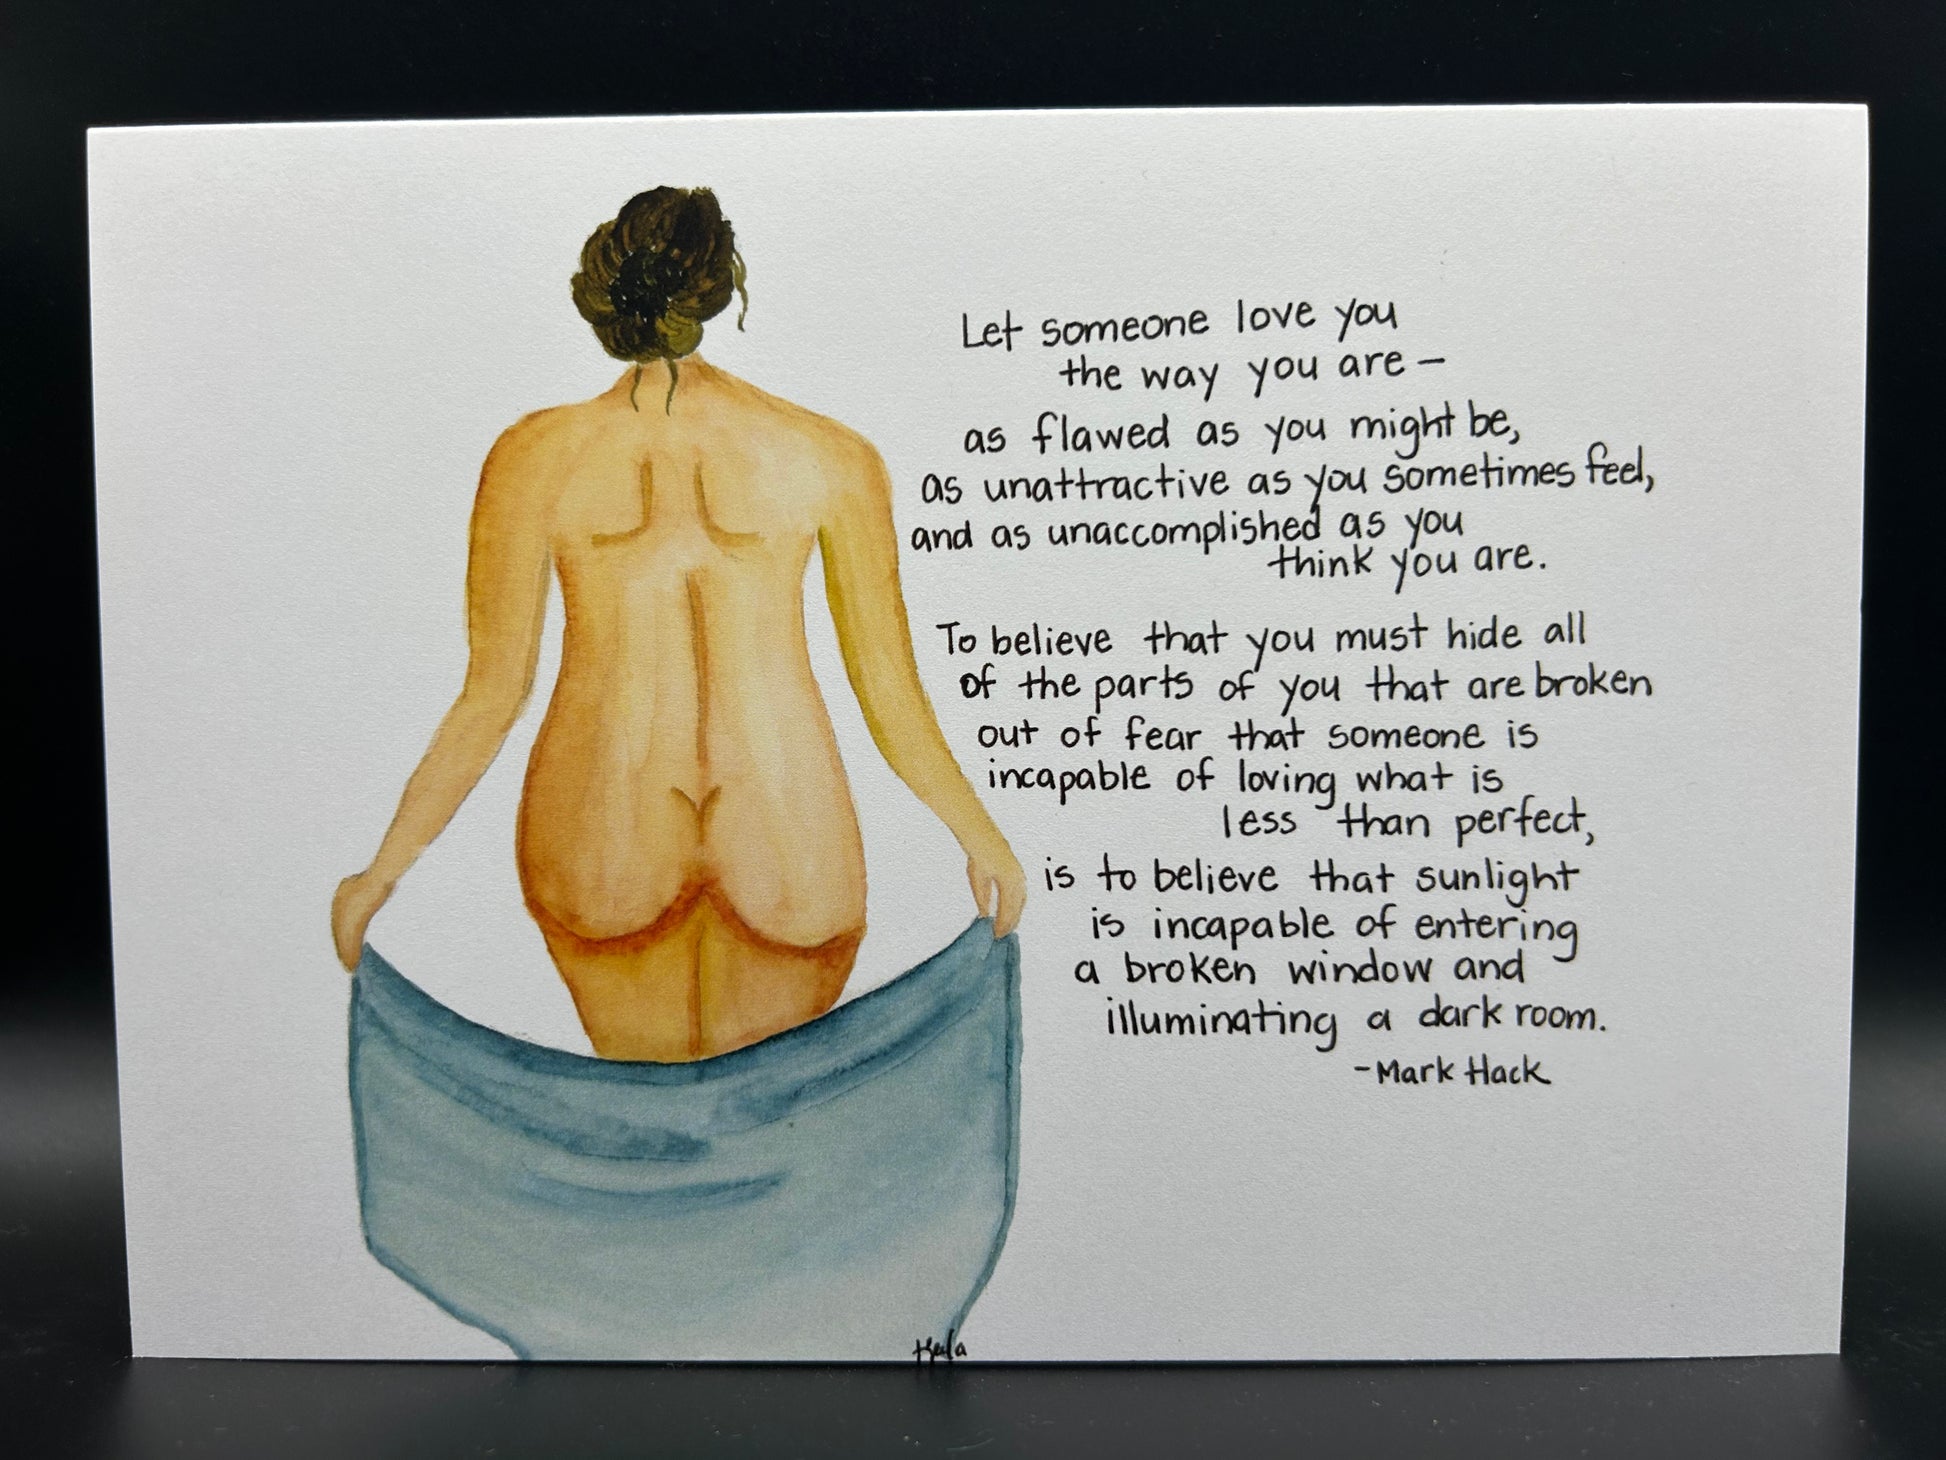 Let someone love you
the way you are –
as flawed as you might be,
as unattractive as you sometimes feel,
and as unaccomplished as you
think you are.
To believe that you must hide all
of the parts of you that are broken
out of fear that someone is
incapable of loving what is
less than perfect,
is to believe that sunlight
is incapable of entering
a broken window and
illuminating a dark room.
-Mark Hack